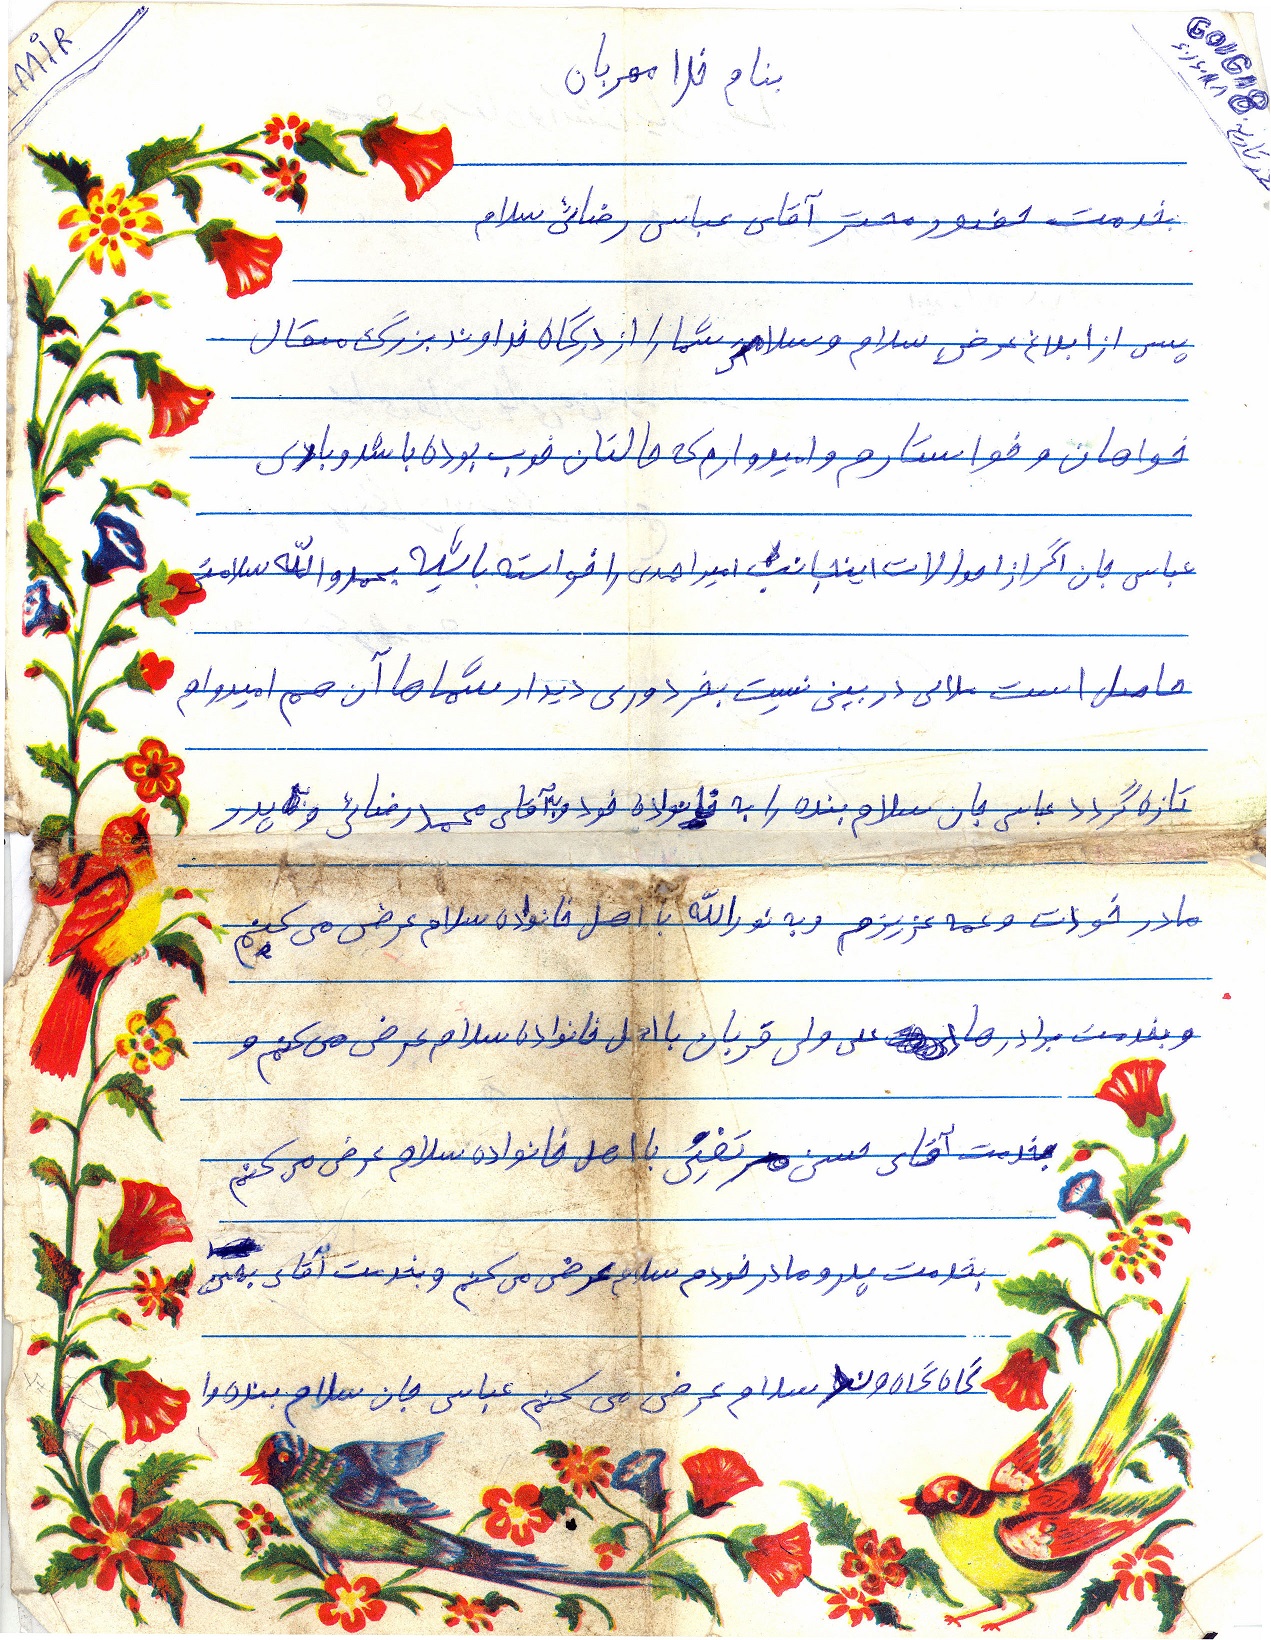 AMIR
بنام خدا مهربان
بخدمت حضور محتر آقای عباسی رضائی سلام
پس از ابلاغ عرض سلام و سلامتی شما را از درگاه خداوند بزرگ متعال
خواهان و خواستارم و امیدوارم که حالتان خوب بوده باشد و باری
عباسی جان اگر از احوالات اینجانب امیر احمدی را خواسته باشید بحمدو الله سلامتی
حاصل است ملالی در بینی نیست بغر دوری دیدار شماها آن هم امیدوام
تازه گردد عباسی جان سلام بنده را به خانواده خود وبه آقای محمد رضائی و به پدر
مادر خودت و عمه عزیزم و به نورالله با اهل خانواده سلام عرض می کنم
و بخدمت برادر علی ولی قربان با اهل خانواده سلام عرض می کنم و
بخدمت آقای حسنی با اهل خانواده سلام عرض می کنم
بخدمت پدر و مادر خودم سلام عرض می کنم و بخدمت آقای
سلام عرض می کنم عباسی جان سلام بنده را